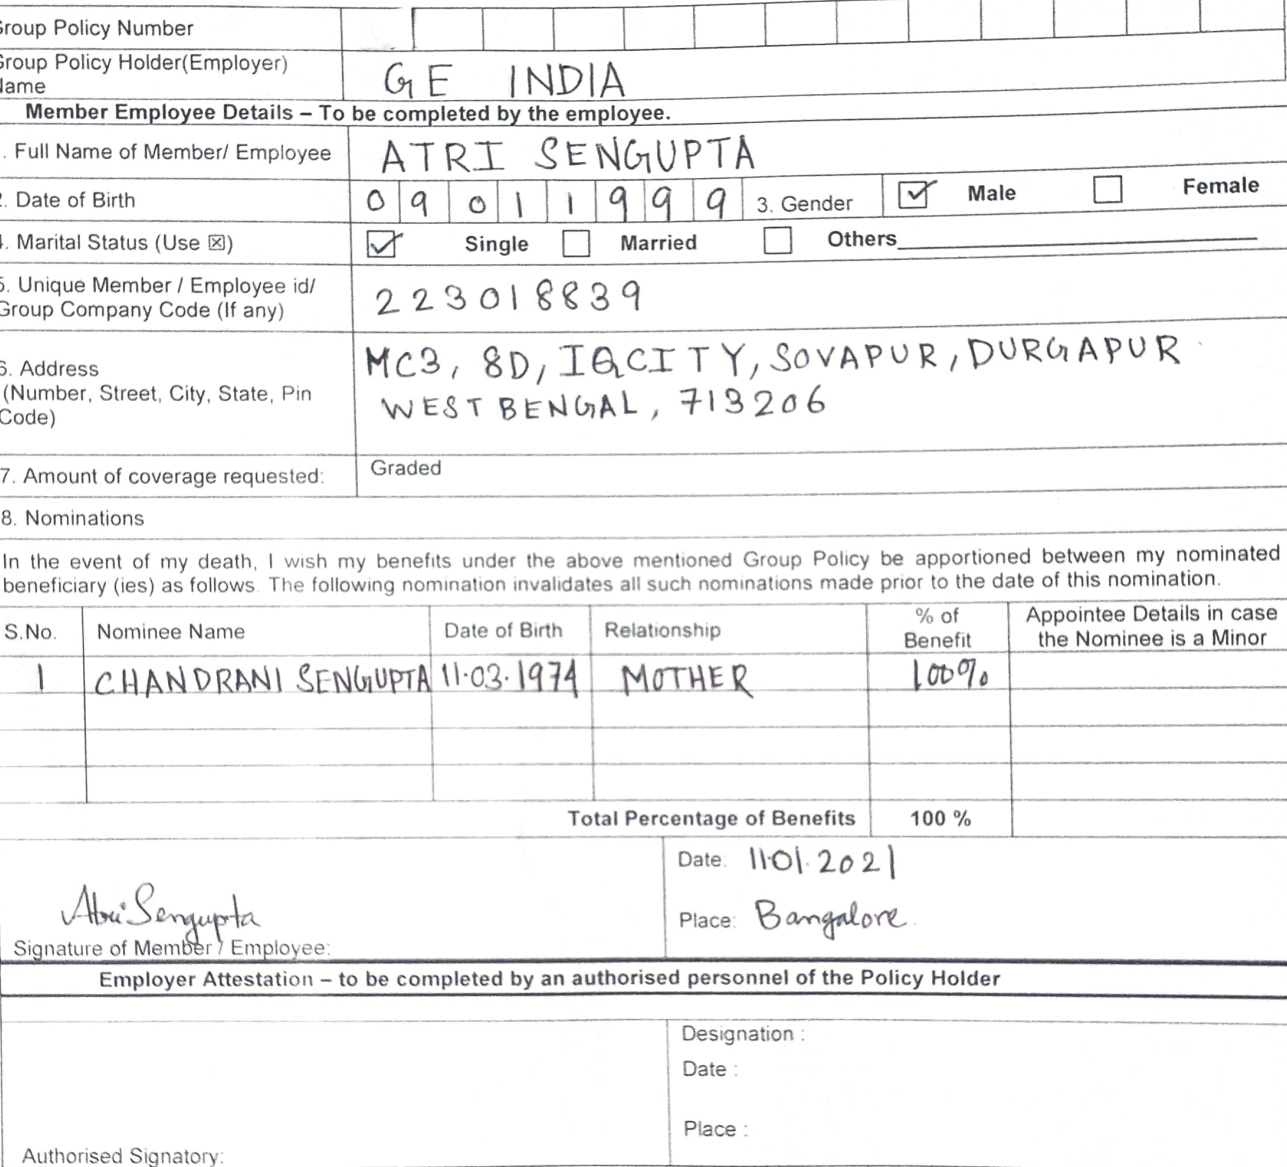 Group Policy Number
Group Policy Holder(Employer)
Name
GE INDIA
Member Employee Details – To be completed by the employee.
. Full Name of Member/ Employee ATRI SENGUPTA
2. Date of Birth 0 9 0 1 1 9 9 9 3. Gender ☑ Male ☐ Female
4. Marital Status (Use ☒) ☑ Single ☐ Married ☐ Others
5. Unique Member / Employee id/
Group Company Code (If any)
223018839
6. Address
(Number, Street, City, State, Pin
Code)
MC3, 8D, IQCITY, SOVAPUR, DURGAPUR
WEST BENGAL, 713206
7. Amount of coverage requested: Graded
8. Nominations
In the event of my death, I wish my benefits under the above mentioned Group Policy be apportioned between my nominated
beneficiary (ies) as follows. The following nomination invalidates all such nominations made prior to the date of this nomination.
S.No. Nominee Name Date of Birth Relationship % of Benefit Appointee Details in case the Nominee is a Minor
1 CHANDRANI SENGUPTA 11.03.1974 MOTHER 100%
Total Percentage of Benefits 100 %
Atri Sengupta
Signature of Member / Employee:
Date: 11.01.2021
Place: Bangalore
Employer Attestation – to be completed by an authorised personnel of the Policy Holder
Designation :
Date :
Place :
Authorised Signatory: